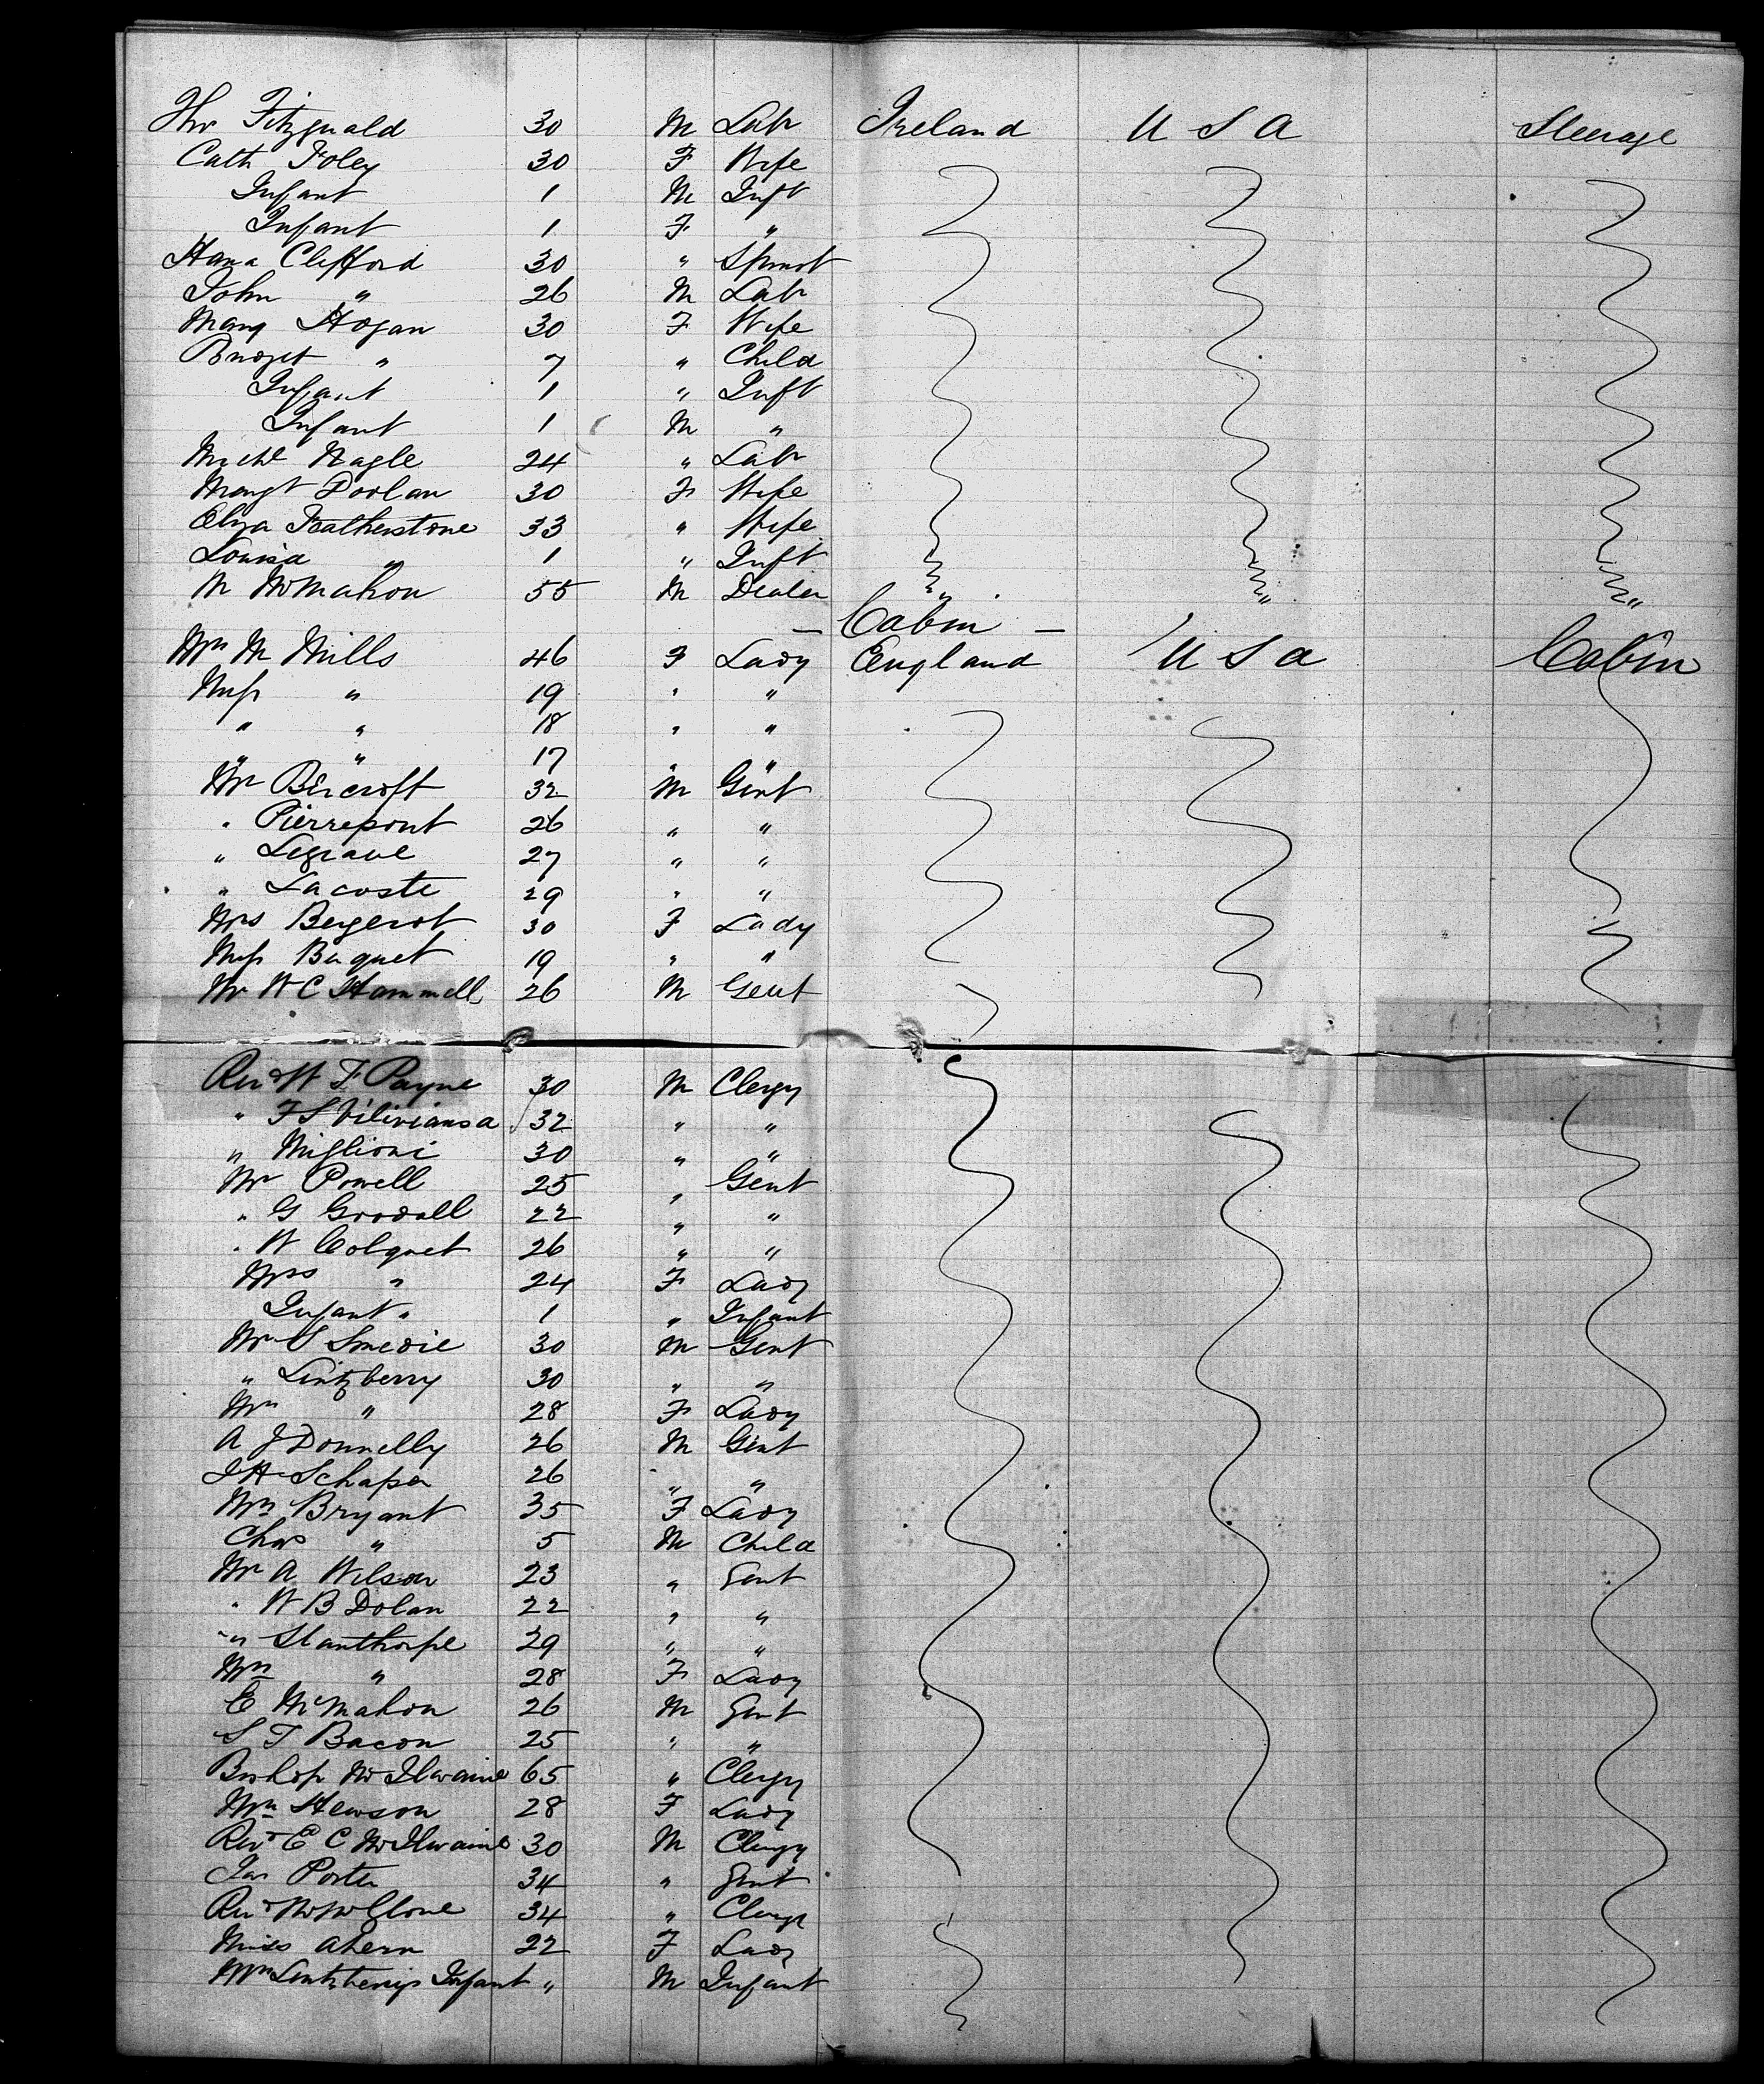 Thos Fitzgerald 30 M Labr Ireland U S A Steerage
Cath Foley 30 F Wife
Infant 1 M Inft
Infant 1 F "
Hana Clifford 30 " Spinst
John " 26 M Labr
Mary Hogan 30 F Wife
Bridget " 7 " Child
Infant 1 " Inft
Infant 1 M "
Michl Nagle 24 " Labr
Margt Doolan 30 F Wife
Eliza Featherstone 33 " Wife
Louisa " 1 " Inft
M McMahon 55 M Dealer " " "
— Cabin —
Mrs M Mills 46 F Lady England U S A Cabin
Miss " 19 " "
" " 18 " "
" " 17 " "
Mr Bercroft 32 M Gent
" Pierrepont 26 " "
" Legrave 27 " "
" Lacoste 29 " "
Mrs Bergerot 30 F Lady
Miss Baquet 19 " "
Mr W C Hammell 26 M Gent
Revd W F Payne 30 M Clergy
" F S 32 " "
" Miglioni 30 " "
Mr Powell 25 " Gent
" G Goodall 22 " "
" W Colquet 26 " "
Mrs " 24 F Lady
Infant " 1 " Infant
Mr Smedie 30 M Gent
" Lintzberry 30 " "
Mrs " 28 F Lady
A J Donnelly 26 M Gent
J H Schaper 26 " "
Mrs Bryant 35 F Lady
Chas " 5 M Child
Mr A Wilson 23 " Gent
" W B Dolan 22 " "
" Stanthorpe 29 " "
Mrs " 28 F Lady
E McMahon 26 M Gent
S T Bacon 25 " "
Bishop McIlvaine 65 " Clergy
Mrs Hewson 28 F Lady
Revd E C McIlvaine 30 M Clergy
Jas Porter 34 " Gent
Revd McGlone 34 " Clergy
Miss Ahern 22 F Lady
Mrs Lintzberrys Infant " M Infant